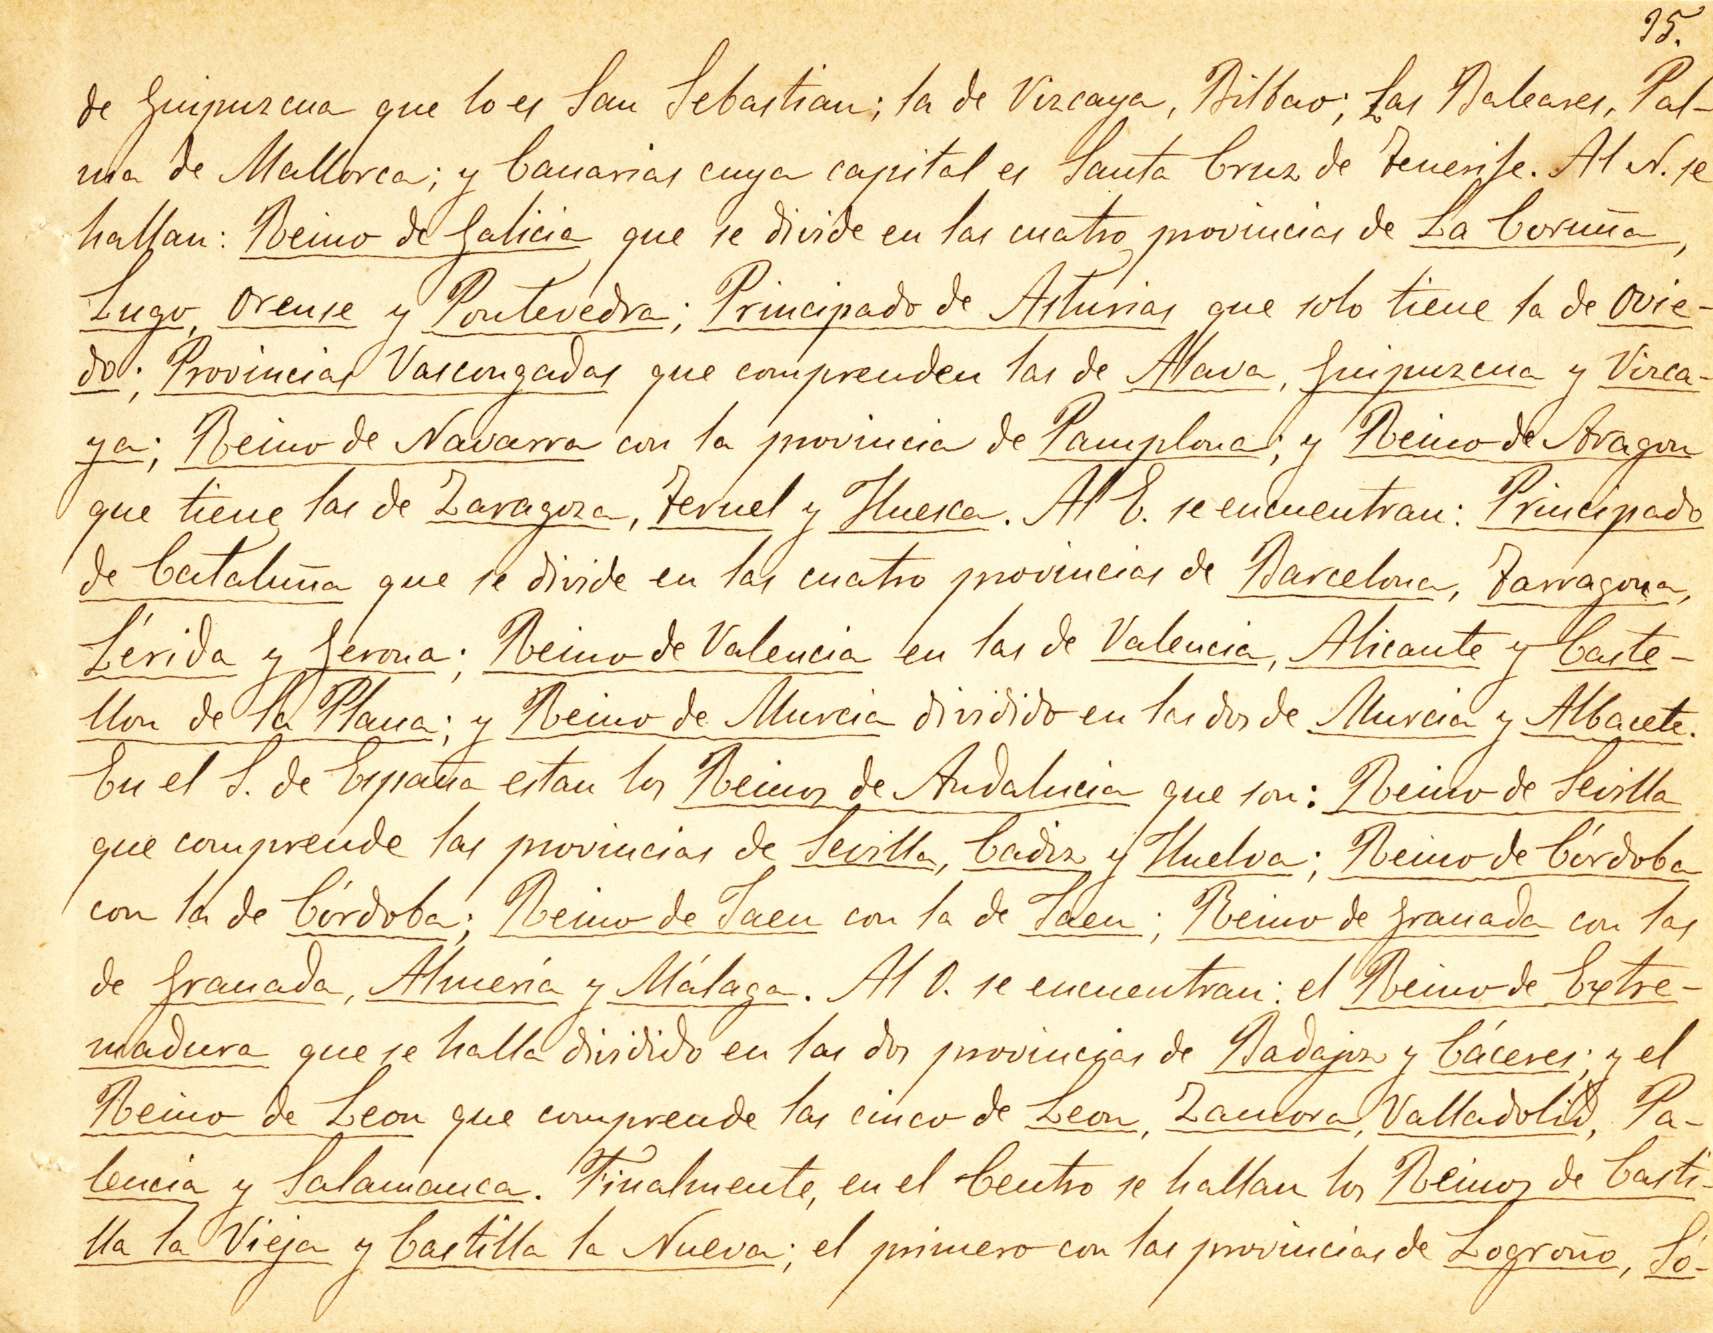 95.
de Guipuzcua que lo es San Sebastian; la de Vizcaya, Bilbao; Las Baleares, Pal-
ma de Mallorca; y Canarias cuya capital es Santa Cruz de Tenerife. Al N. se
hallan: Reino de Galicia que se divide en las cuatro provincias de La Coruña,
Lugo, Orense y Pontevedra; Principado de Asturias que solo tiene la de Ovie-
do; Provincias Vascongadas que comprenden las de Alava, Guipuzcua y Vizca-
ya; Reino de Navarra con la provincia de Pamplona; y Reino de Aragon
que tiene las de Zaragoza, Teruel y Huesca. Al E. se encuentran: Principado
de Cataluña que se divide en las cuatro provincias de Barcelona, Tarragona,
Lérida y Gerona; Reino de Valencia en las de Valencia, Alicante y Caste-
llon de la Plana; y Reino de Murcia dividido en las dos de Murcia y Albacete.
En el S. de España estan los Reinos de Andalucia que son: Reino de Sevilla
que comprende las provincias de Sevilla, Cadiz y Huelva; Reino de Córdoba
con la de Córdoba; Reino de Jaen con la de Jaen; Reino de Granada con las
de Granada, Almería y Málaga. Al O. se encuentran: el Reino de Extre-
madura que se halla dividido en las dos provincias de Badajoz y Cáceres; y el
Reino de Leon que comprende las cinco de Leon, Zamora, Valladolid, Pa-
lencia y Salamanca. Finalmente, en el Centro se hallan los Reinos de Casti-
lla la Vieja y Castilla la Nueva; el primero con las provincias de Logroño, Só-